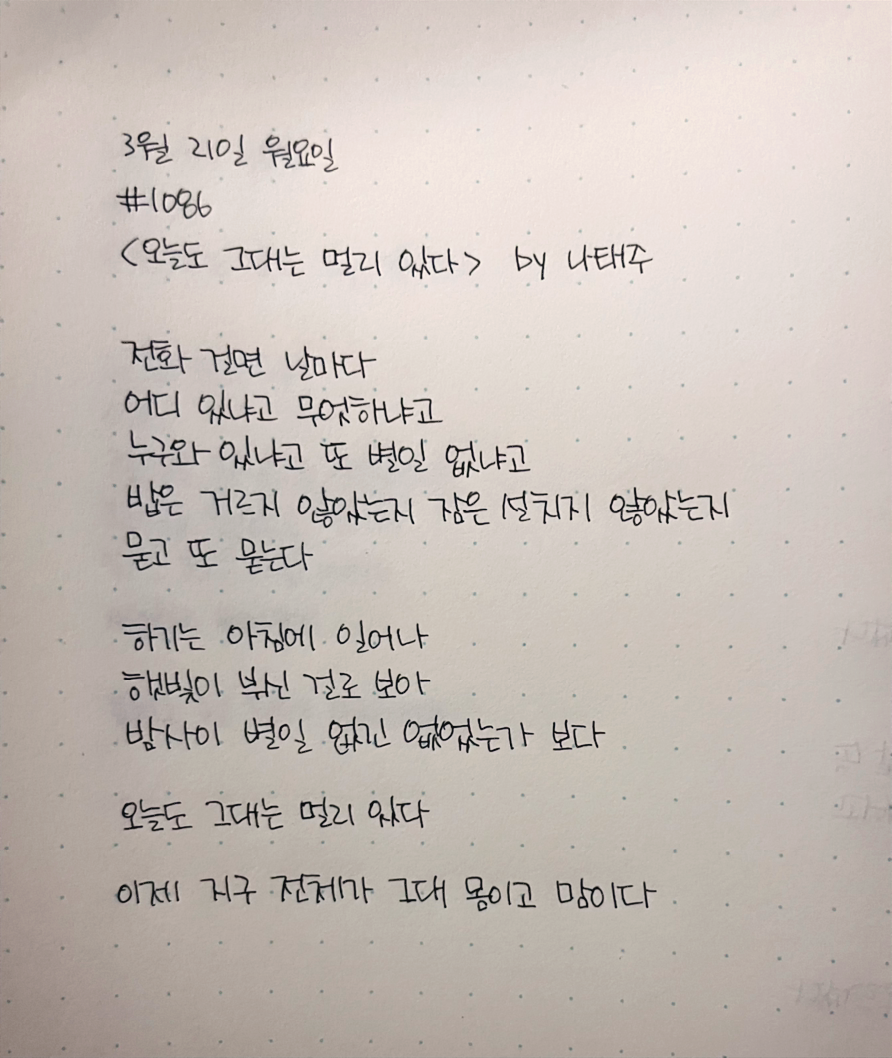 3월 21일 월요일
#1086
<오늘도 그대는 멀리 있다> by 나태주
전화 걸면 날마다
어디 있냐고 무엇하냐고
누구와 있냐고 또 별일 없냐고
밥은 거르지 않았는지 잠은 설치지 않았는지
묻고 또 묻는다
하기는 아침에 일어나
햇빛이 밝신 걸로 보아
밤사이 별일 없긴 없었는가 보다
오늘도 그대는 멀리 있다
이제 지구 전체가 그대 몸이고 맘이다